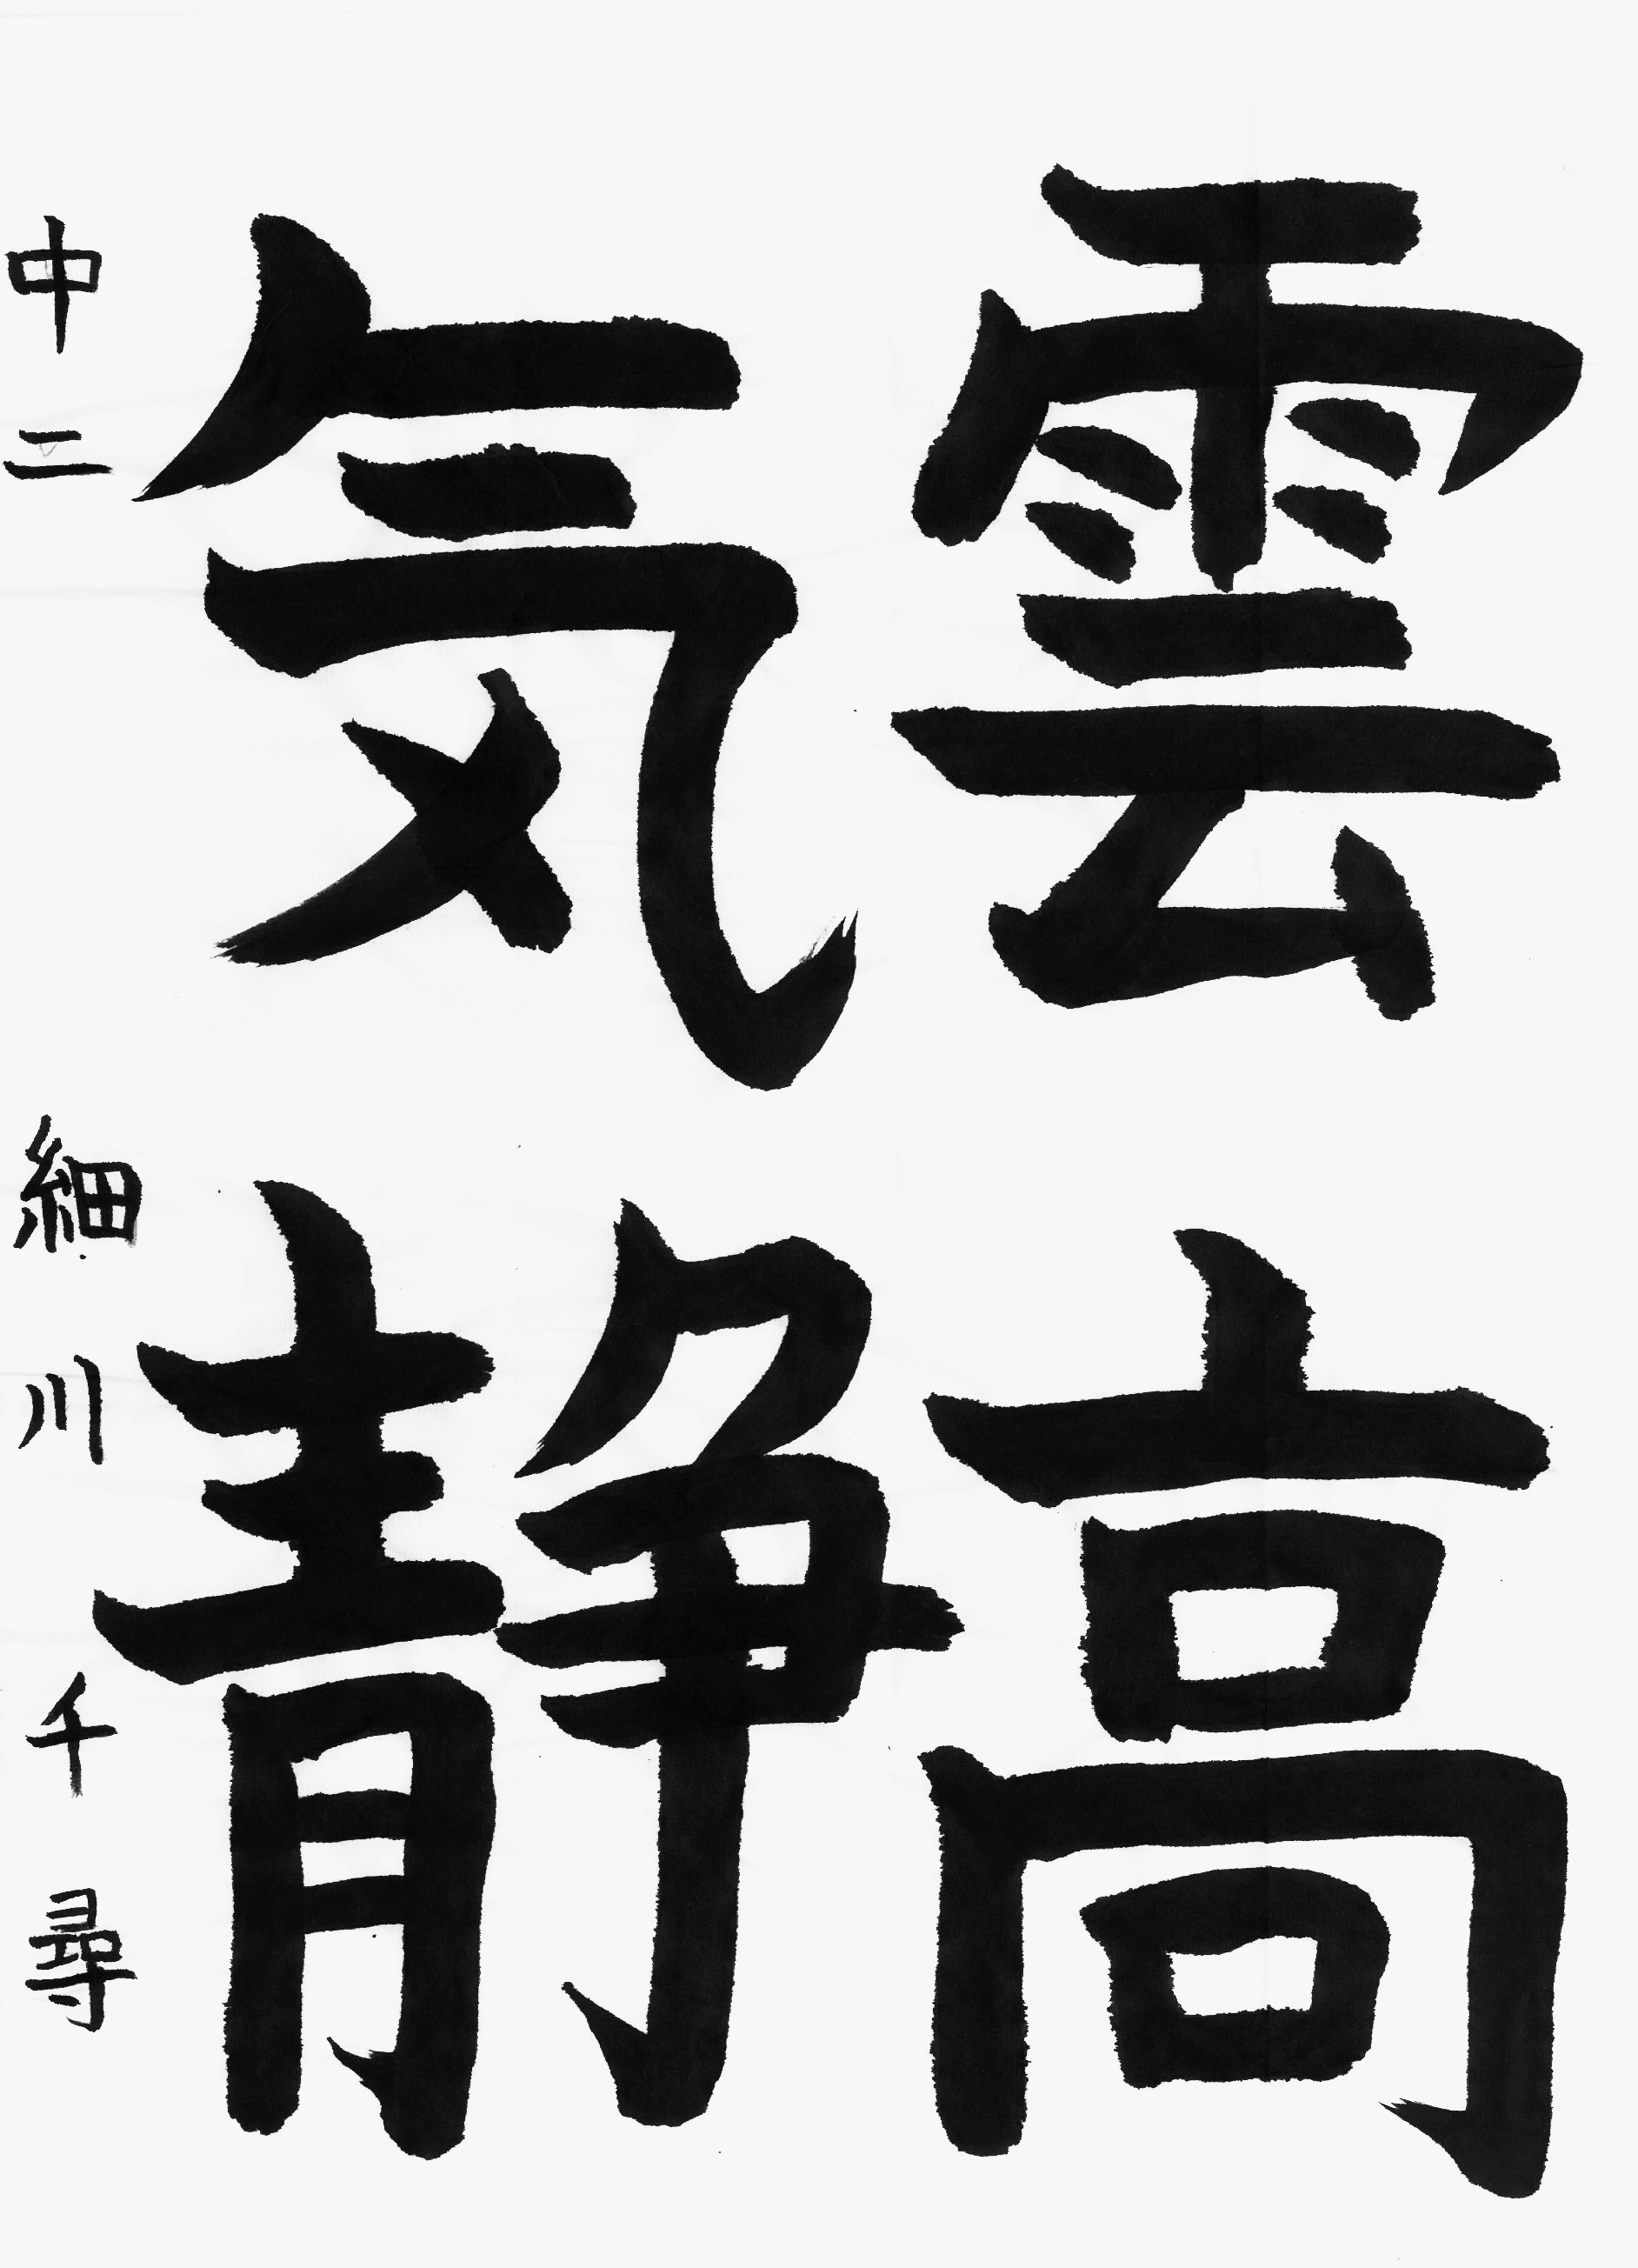 雲高
気静
中二 細川千尋